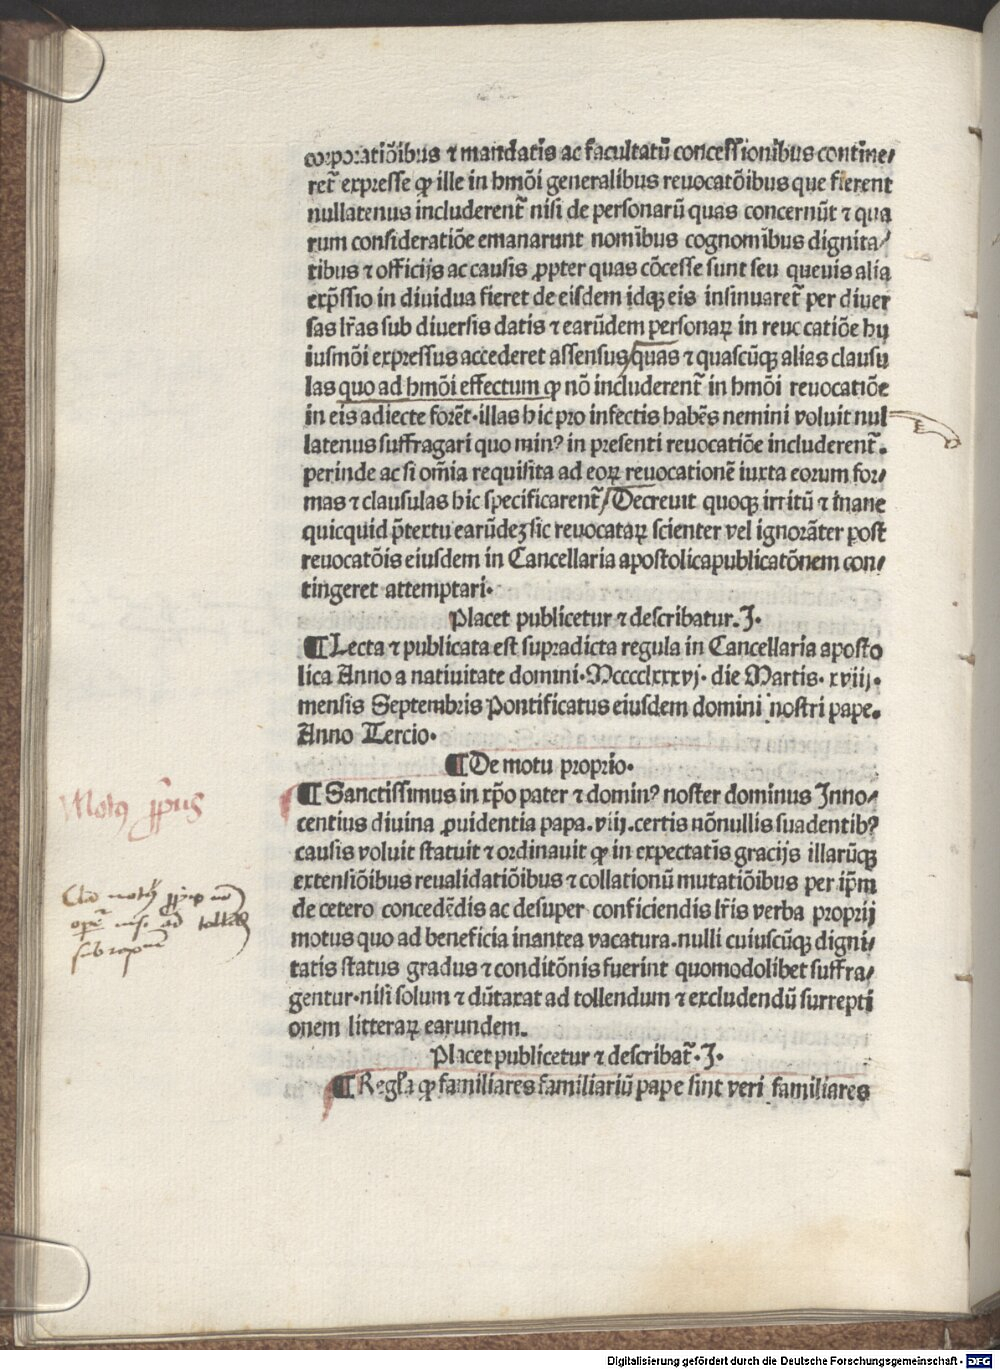 corporatiōibus ⁊ mandatis ac facultatū concessionibus contine⸗
ret̄ expresse ꝙ ille in hmōi generalibus reuocatōibus que fierent
nullatenus includerent̄ nisi de personarū quas concernūt ⁊ qua
rum consideratiōe emanarunt nomībus cognomībus dignita⸗
tibus ⁊ officijs ac causis ꝓpter quas cōcesse sunt seu queuis alia
exp̄ssio in diuidua fieret de eisdem idqꝫ eis insinuaret̄ per diuer
sas lr̄as sub diuersis datis ⁊ earūdem personaꝝ in reuocatiōe hu
iusmōi expressus accederet assensus/quas ⁊ quascūqꝫ alias clausu
las quo ad hmōi effectum ꝙ nō includerent̄ in hmōi reuocatiōe
in eis adiecte forēt·illas hic pro infectis habēs nemini voluit nul
latenus suffragari quo minꝰ in presenti reuocatiōe includerent̄.
perinde ac si om̄ia requisita ad eoꝝ reuocationē iuxta eorum for⸗
mas ⁊ clausulas hic specificarent̄/Decreuit quoqꝫ irritū ⁊ inane
quicquid p̄textu earūdeꝫ sic reuocataꝝ scienter vel ignorāter post
reuocatōis eiusdem in Cancellaria apostolica publicatōnem con⸗
tingeret attemptari·
Placet publicetur ⁊ describatur. J·
¶ Lecta ⁊ publicata est supradicta regula in Cancellaria aposto
lica Anno a natiuitate domini·Mcccclxxxvj· die Martis· xviij·
mensis Septembris Pontificatus eiusdem domini nostri pape.
Anno Tercio·
¶ De motu proprio·
¶ Sanctissimus in xp̄o pater ⁊ dominꝰ noster dominus Inno⸗
centius diuina ꝓuidentia papa.viij.certis nōnullis suadentibꝰ
causis voluit statuit ⁊ ordinauit ꝙ in expectatis gracijs illarūqꝫ
extensiōibus reualidatiōibus ⁊ collationū mutatiōibus per ip̄m
de cetero concedēdis ac desuper conficiendis lr̄is verba proprij
motus quo ad beneficia inantea vacatura.nulli cuiuscūqꝫ digni⸗
tatis status gradus ⁊ conditōnis fuerint quomodolibet suffra⸗
gentur·nisi solum ⁊ dūtaxat ad tollendum ⁊ excludendū surrepti
onem litteraꝝ earundem.
Placet publicetur ⁊ describat̄·J·
¶ Regl̄a ꝙ familiares familiariū pape sint veri familiares
Motꝰ ꝓp̄us
nisi ad
Digitalisierung gefördert durch die Deutsche Forschungsgemeinschaft - DFG